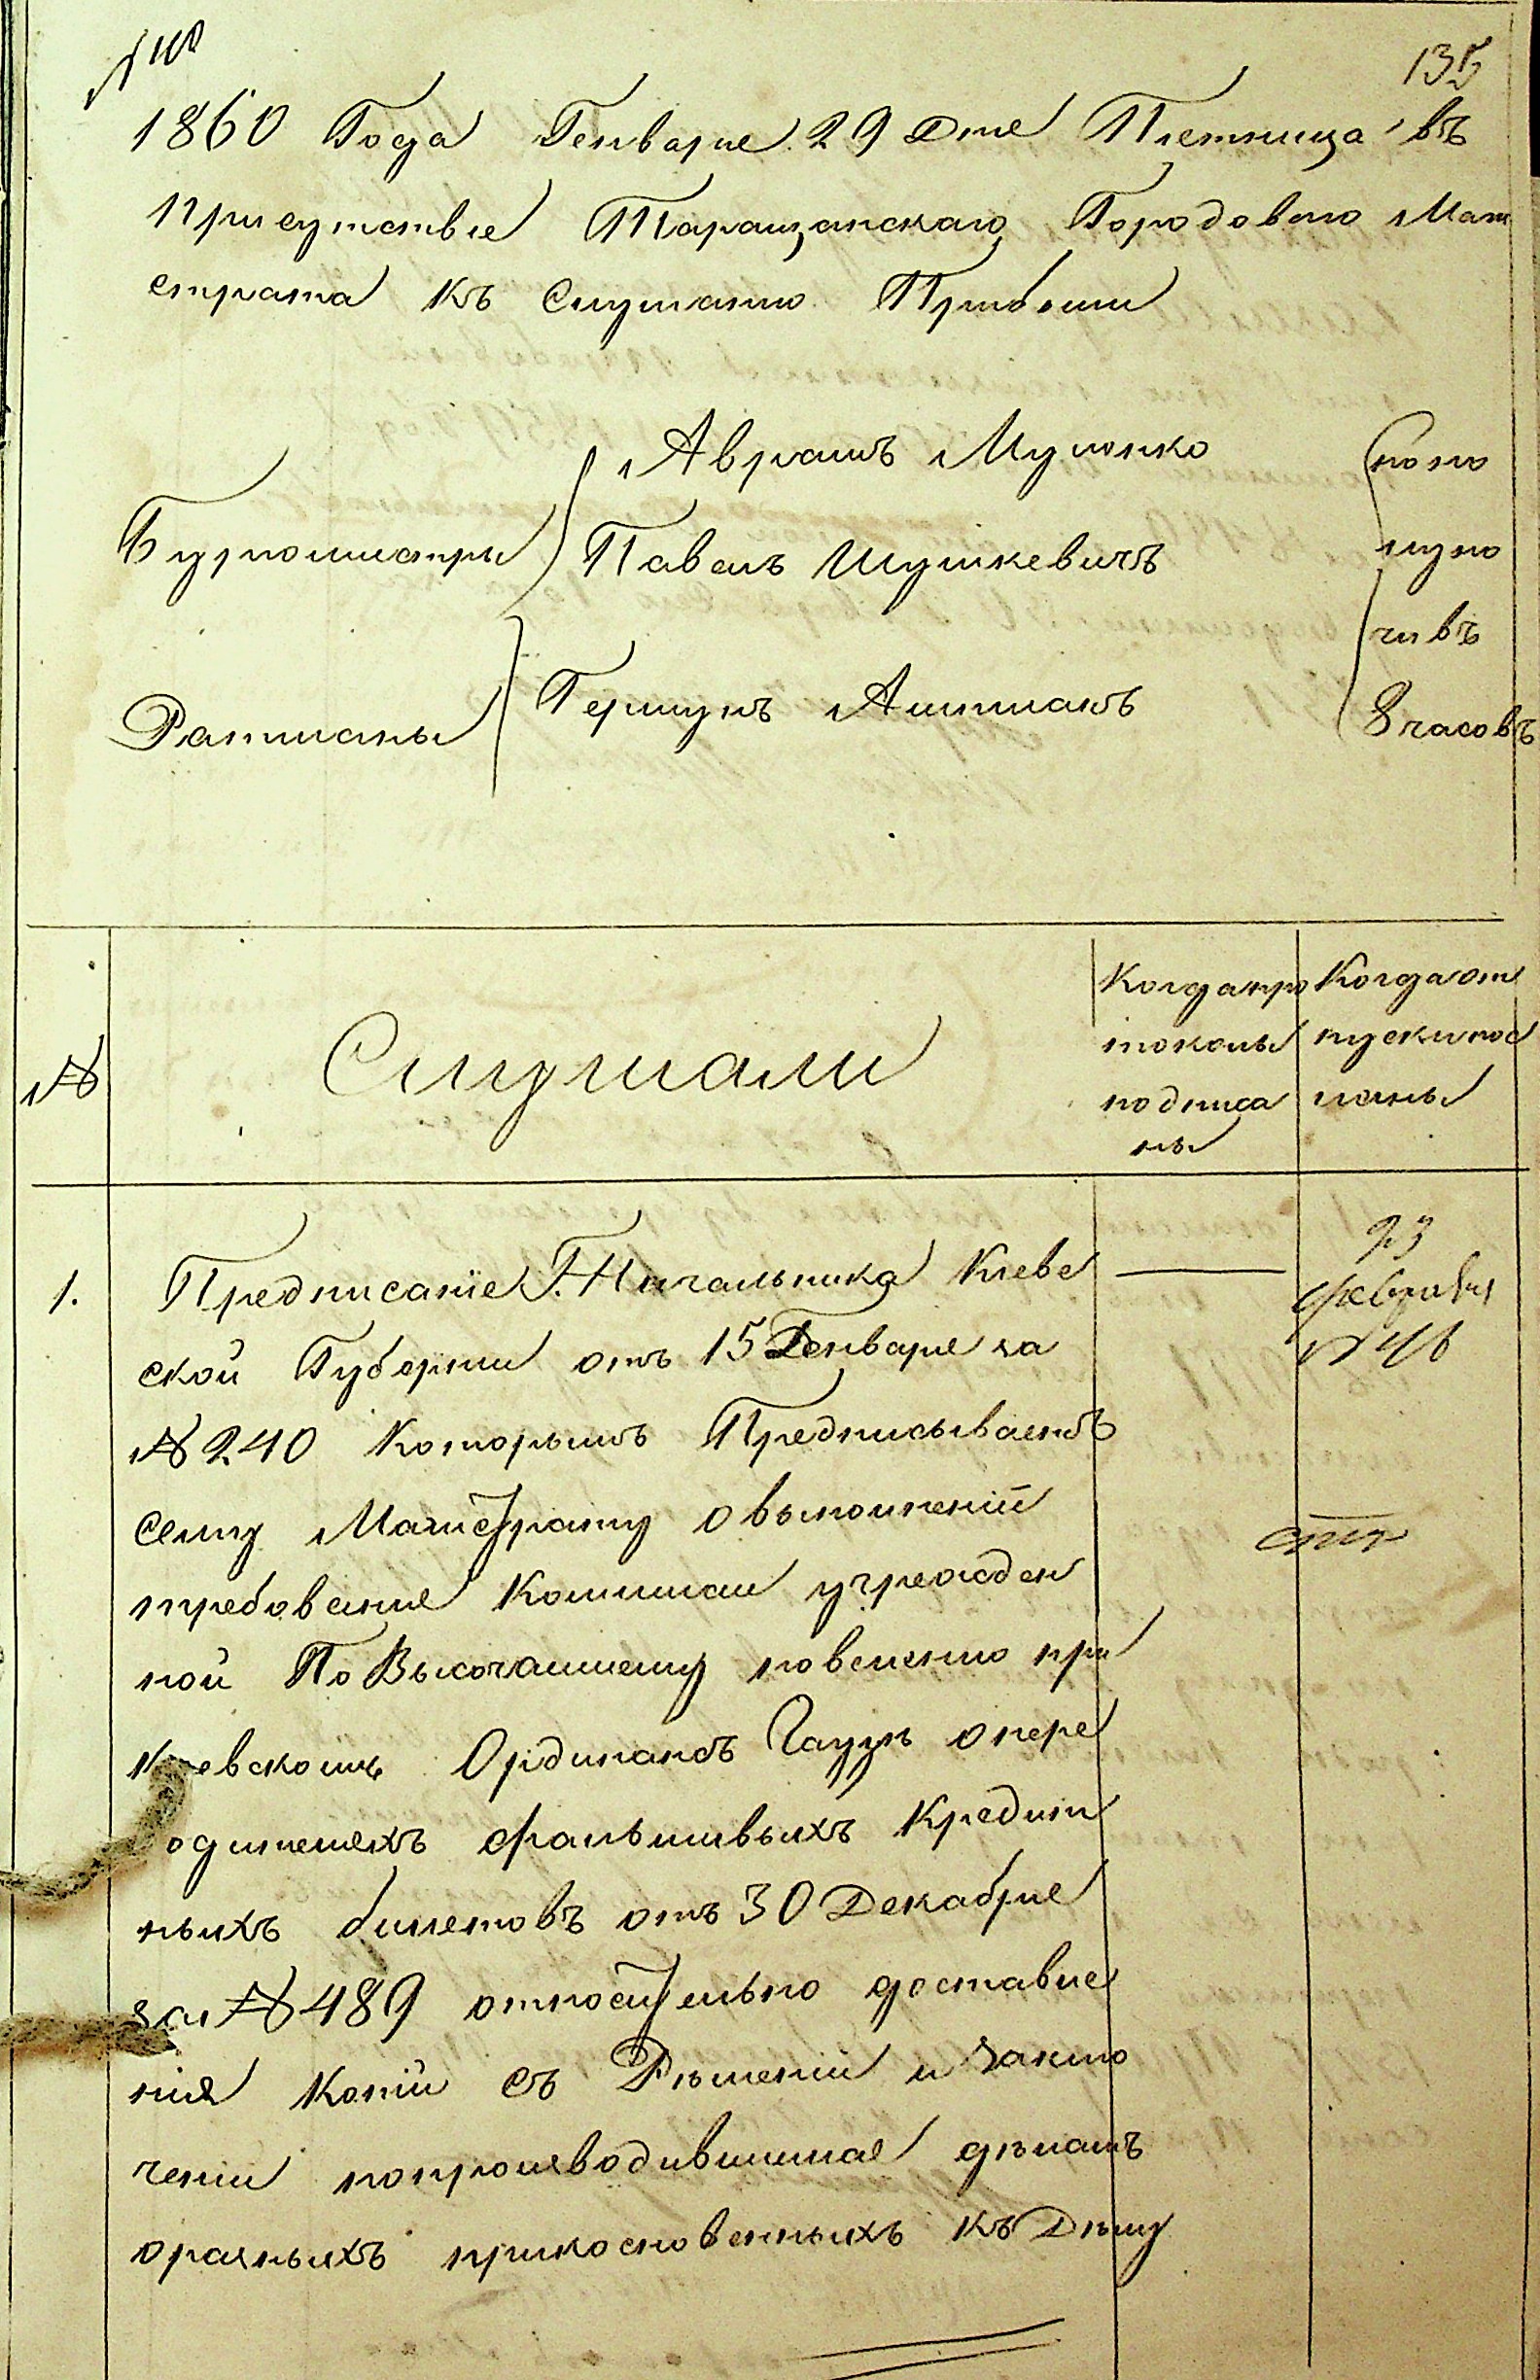 135
1860 Года Генваря 29 дня Пятница въ
Присутствіе Таращанскаго Городоваго Маги
страта къ Слушанію Прибыли
Бургомистры
Аврамъ Муленко
Павелъ Шушкевичъ
Ратманы
Гершунъ
пополу
ночи въ
8 часовъ
№
Слушали
Когда про
токолы
подписа
ны
Когда от
пуски пос
ланы
1.
Предписаніе Г. Начальника Кіевс
ской Губерніи отъ 15 Генваря за
№ 240 которымъ Предписываетъ
сему Магистрату о выполненіи
требованія Коммисіи учрежден
ной По Высочайшему повеленію при
Кіевскомъ Ординансъ Гаузъ о пере
водителяхъ фальшивыхъ Кредит
ныхъ билетовъ отъ 30 Декабря
за № 489 относительно доставле
нія Копій съ Рѣшеній и Заклю
ченій попроизводившимся дѣламъ
о разныхъ прикосновенныхъ къ Дѣлу
23
февраля